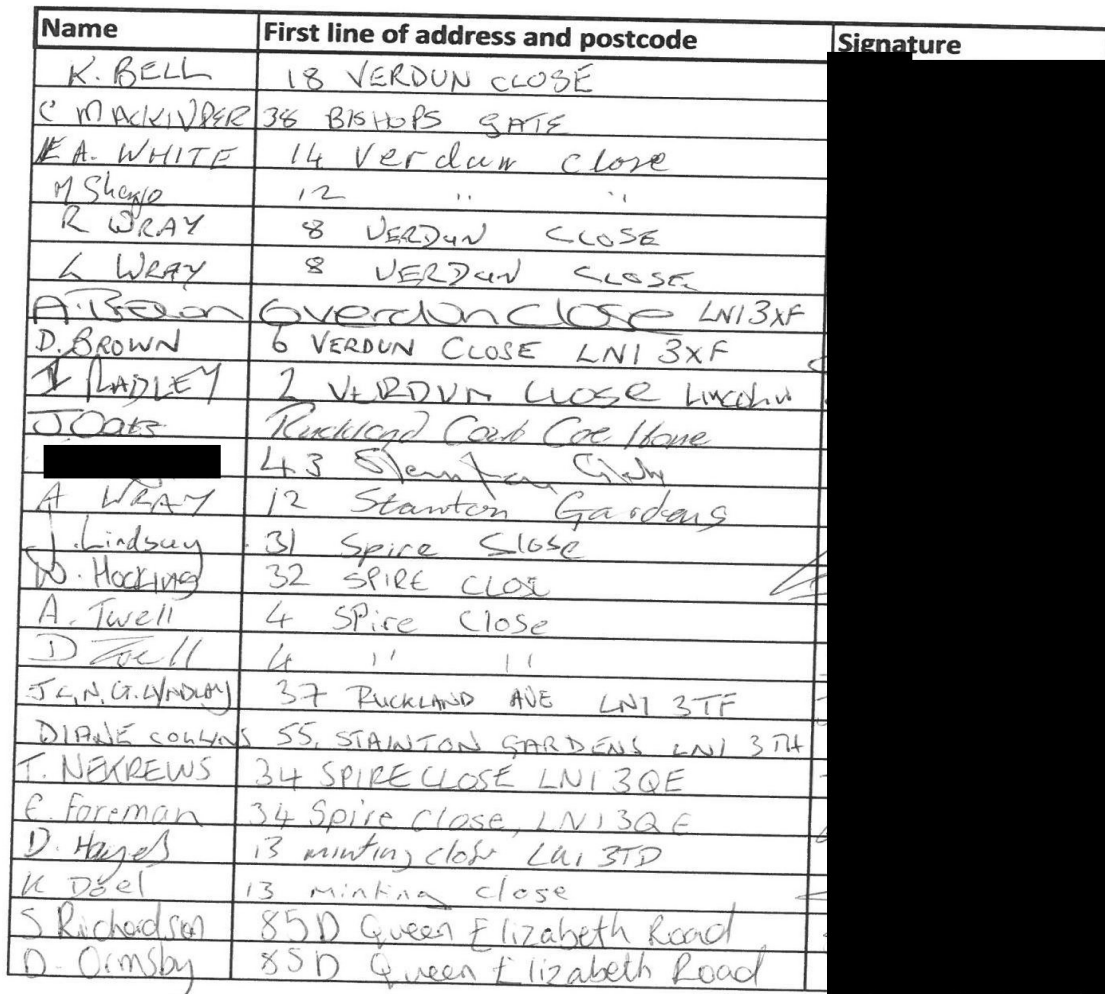 Name First line of address and postcode Signature
K. BELL 18 VERDUN CLOSE
C 38 BISHOPS GATE
A. WHITE 14 Verdun Close
M 12 " "
R WRAY 8 VERDUN CLOSE
L WRAY 8 VERDUN CLOSE
A. Brown 6 verdun Close LN1 3XF
D. BROWN 6 VERDUN CLOSE LN1 3XF
RADLEY 2 VERDUN CLOSE Lincoln
J Oates Ruckland Court Care Home
43
A WRAY 12 Stainton Gardens
J. Lindsay 31 Spire Close
W. Hocking 32 SPIRE CLOSE
A. Twell 4 Spire Close
D Twell 4 " "
37 RUCKLAND AVE LN1 3TF
DIANE COLLINS 55, STAINTON GARDENS LN1 3TH
T. NEKREWS 34 SPIRE CLOSE LN1 3QE
E. Foreman 34 Spire Close, LN1 3QE
D. Hayes 13 minting close LN1 3TD
K Doel 13 minting close
S Richardson 85D Queen Elizabeth Road
D. Ormsby 85D Queen Elizabeth Road